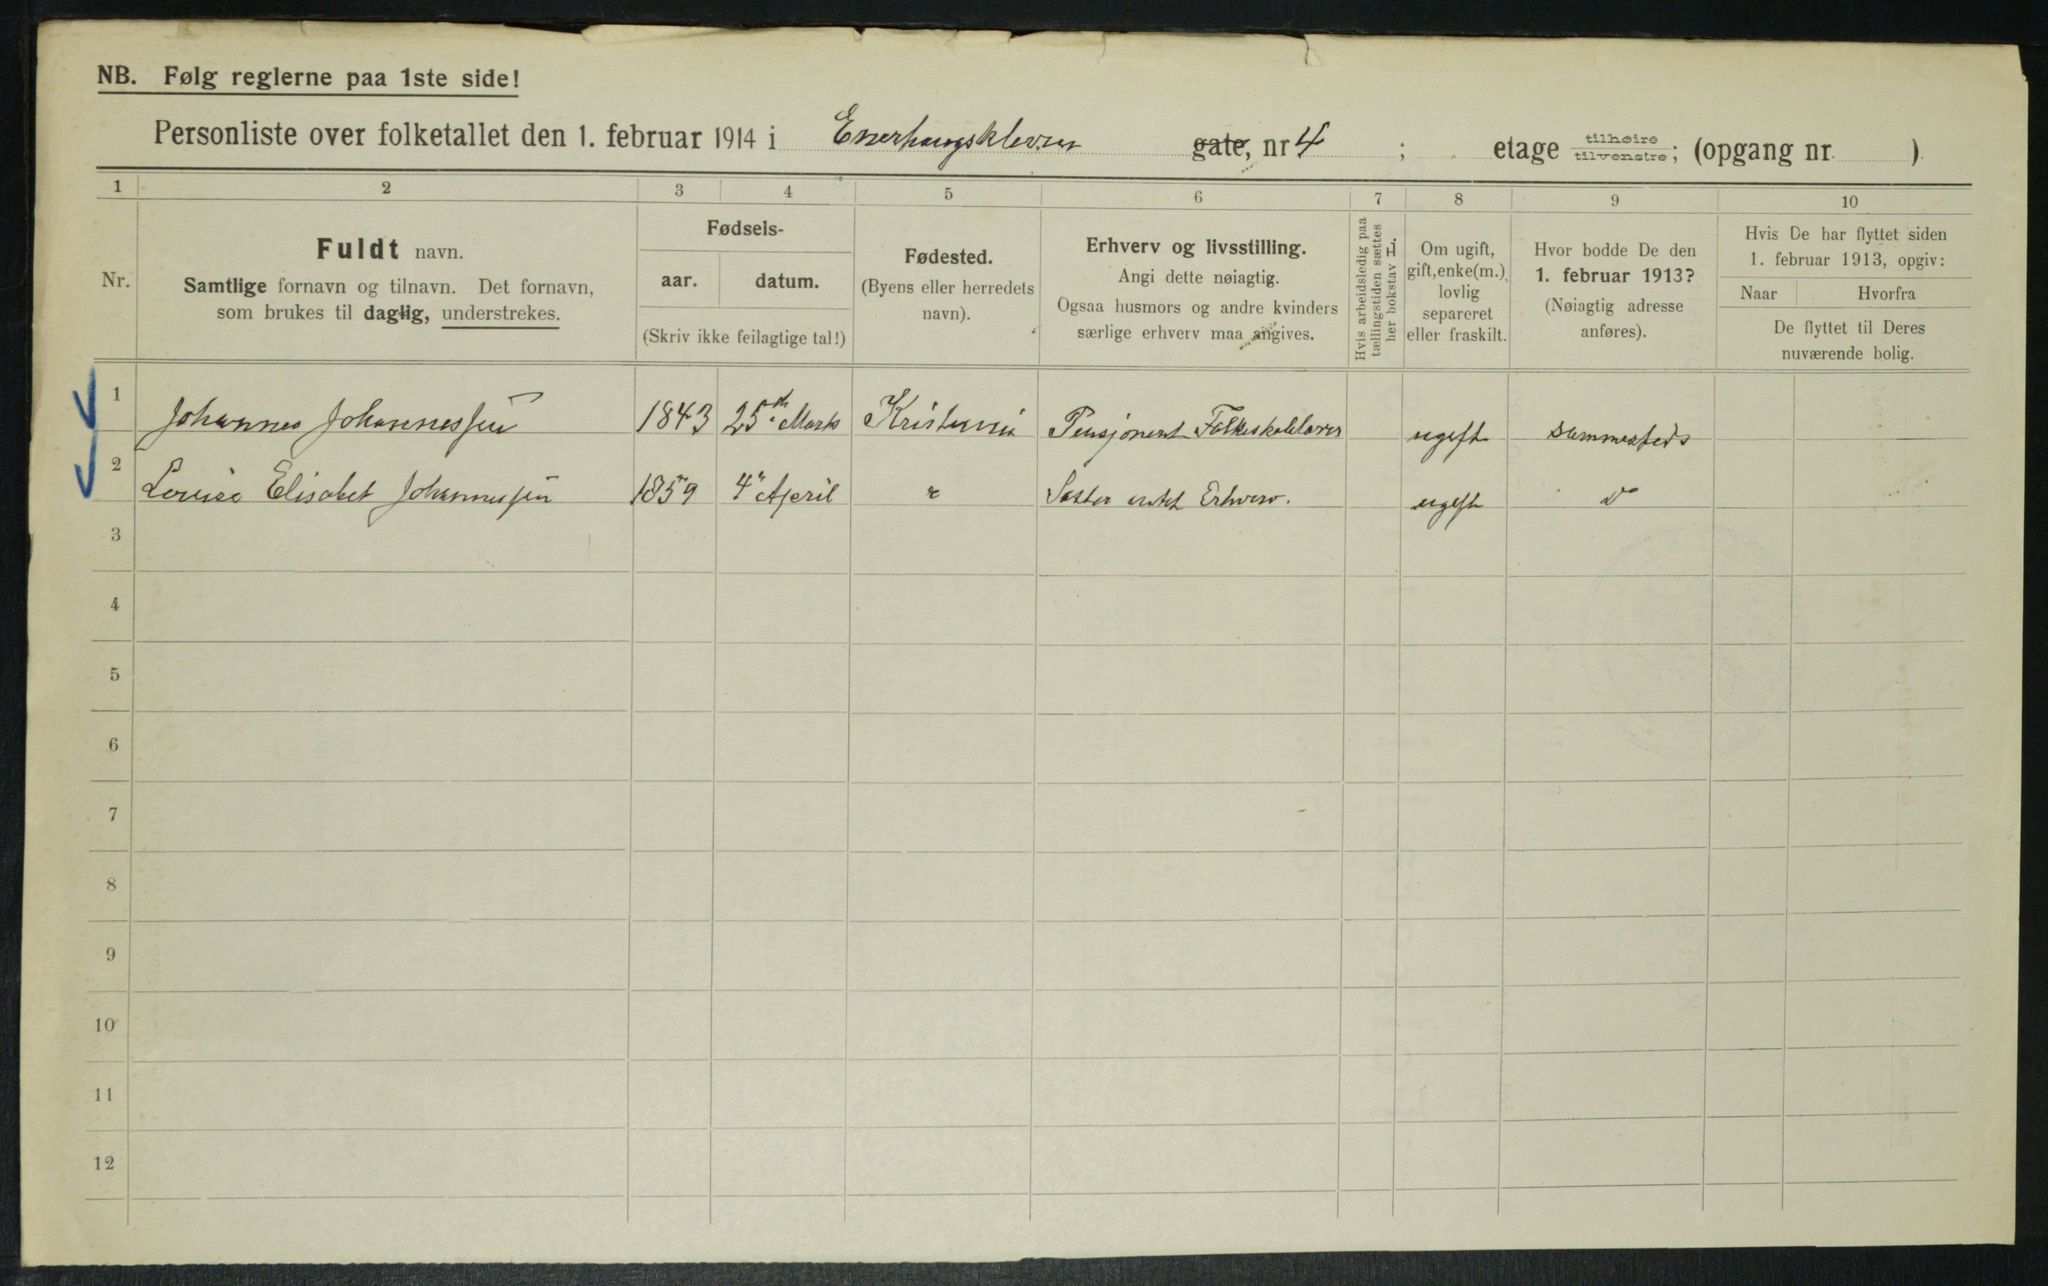 NB. Følg reglerne paa 1ste side!
Personliste over folketallet den 1. februar 1914 i Enerhaugskleven gate, nr 4 ; etage tilhøire tilvenstre; (opgang nr )
1 2 3 4 5 6 7 8 9 10
Nr.
Fuldt navn.
Samtlige fornavn og tilnavn. Det fornavn,
som brukes til daglig, understrekes.
Fødsels-
aar. datum.
(Skriv ikke feilagtige tal!)
Fødested.
(Byens eller herredets
navn).
Erhverv og livsstilling.
Angi dette nøiagtig.
Ogsaa husmors og andre kvinders
særlige erhverv maa angives.
Hvis arbeidsledig paa
tællingstiden sættes
her bokstav L.
Om ugift,
gift, enke(m.),
lovlig
separeret
eller fraskilt.
Hvor bodde De den
1. februar 1913?
(Nøiagtig adresse
anføres).
Hvis De har flyttet siden
1. februar 1913, opgiv:
Naar Hvorfra
De flyttet til Deres
nuværende bolig.
1 Johannes Johannessen 1843 25de Marts Kristiania Pensjonert Folkeskolelærer ugift sammesteds
2 Louise Elisabet Johannessen 1859 4de April Søster Erhverv. ugift
3
4
5
6
7
8
9
10
11
12